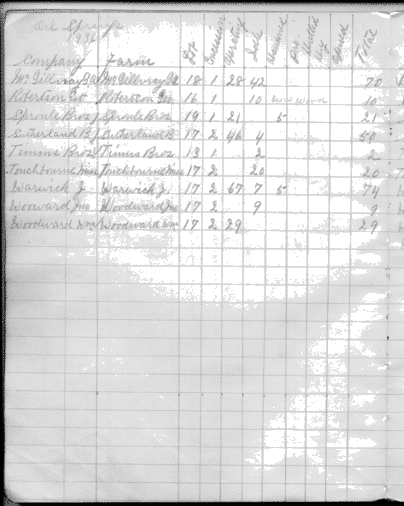 Oil Springs
1936
Company Farm Lot Concession Operating Idle Abandoned Total
McGillvray McGillvray 18 1 28 42 70
Robertson Geo Robertson Geo 16 1 10 10
Sproule Bros Sproule Bros. 19 1 21 5 21
Sutherland B Sutherland B. 17 2 46 4 50
Timms Bros Timms Bros. 13 1 2 2
17 2 20 20
Warwick J. Warwick J. 17 2 67 7 5 74
Woodward Jno 17 2 9 9
Woodward Wm Woodward Wm 17 2 29 29